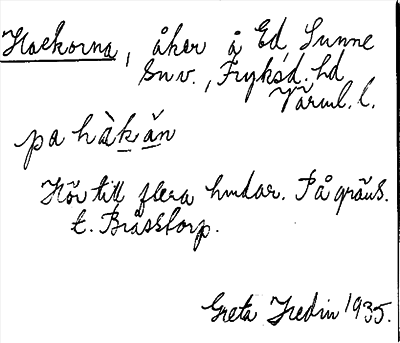 Hackorna, åker å Ed, Sunne
snv., Fryksd. hd
Värml. l.
pa hàkän
Hör till flera hmdar. På gräns.
t. Bråsstorp.
Greta Fredin 1935.